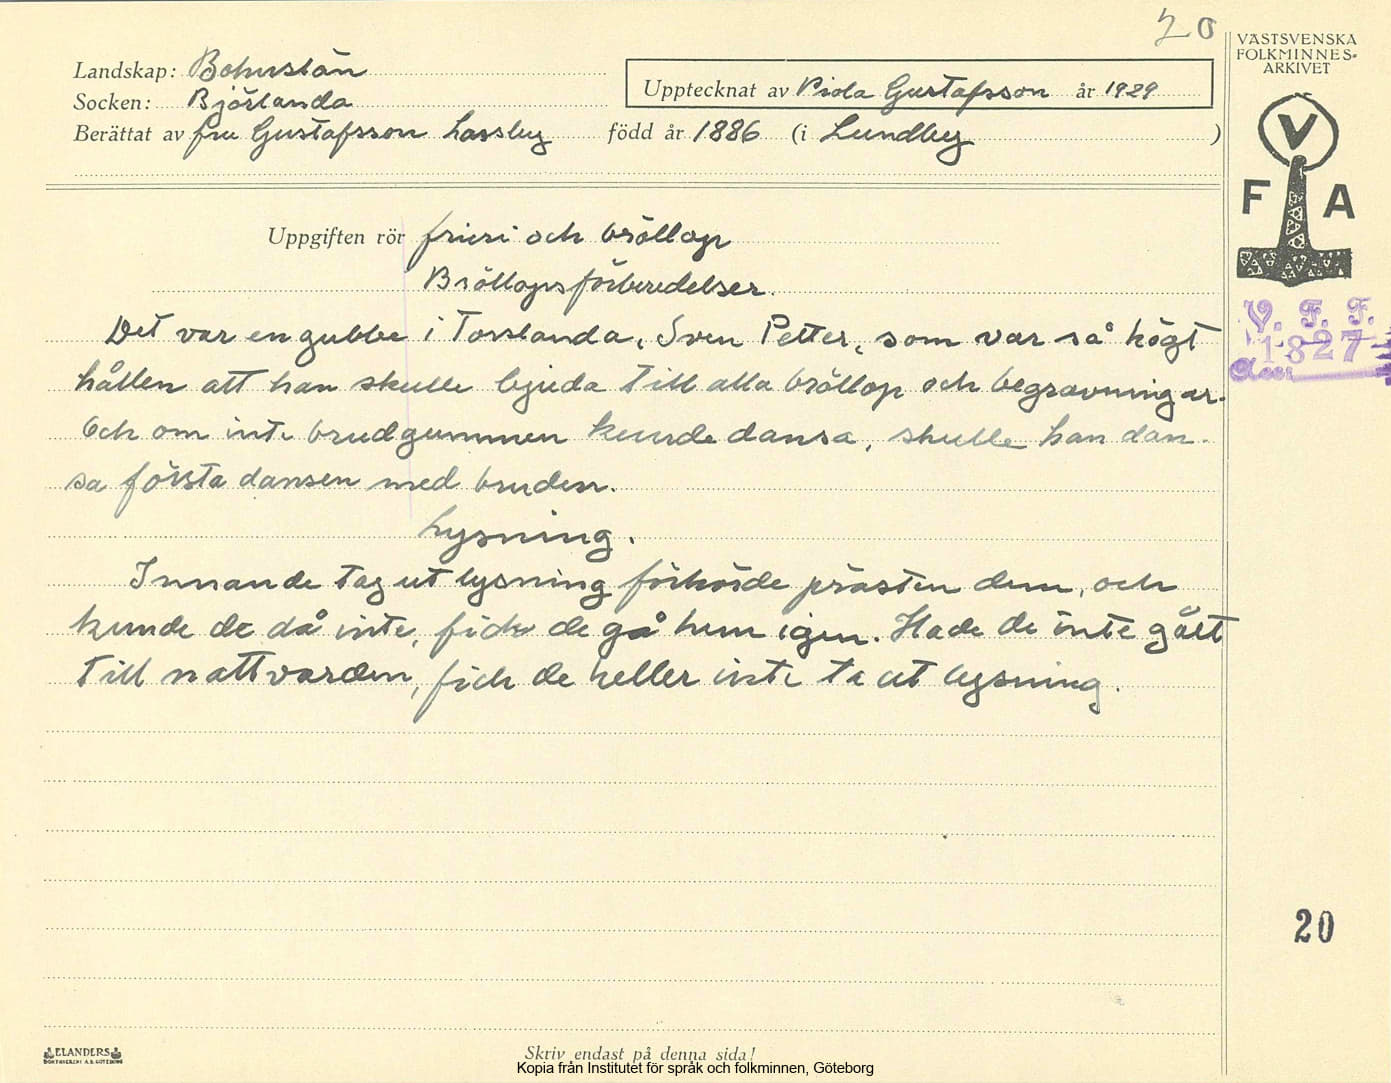 20
VÄSTSVENSKA
FOLKMINNES-
ARKIVET
Landskap: Bohuslän
Upptecknat av Viola Gustafsson år 1929
Socken: Björlanda
Berättat av fru Gustafsson Lassby född år 1886 (i Lundby )
V
F A
Uppgiften rör frieri och bröllop
Bröllopsförberedelser.
V. F. F.
1827
Det var en gubbe i Torslanda, Sven Petter, som var så högt
hållen att han skulle bjuda till alla bröllop och begravningar.
Och om inte brudgummen kunde dansa, skulle han dan-
sa första dansen med bruden.
Lysning.
Innan de tag ut lysning förhörde prästen dem, och
kunde de då inte, fick de gå hem igen. Hade de inte gått
till nattvarden, fick de heller inte ta ut lysning.
20
ELANDERS
BOKTRYCKERI A.B. GÖTEBORG
Skriv endast på denna sida!
Kopia från Institutet för språk och folkminnen, Göteborg